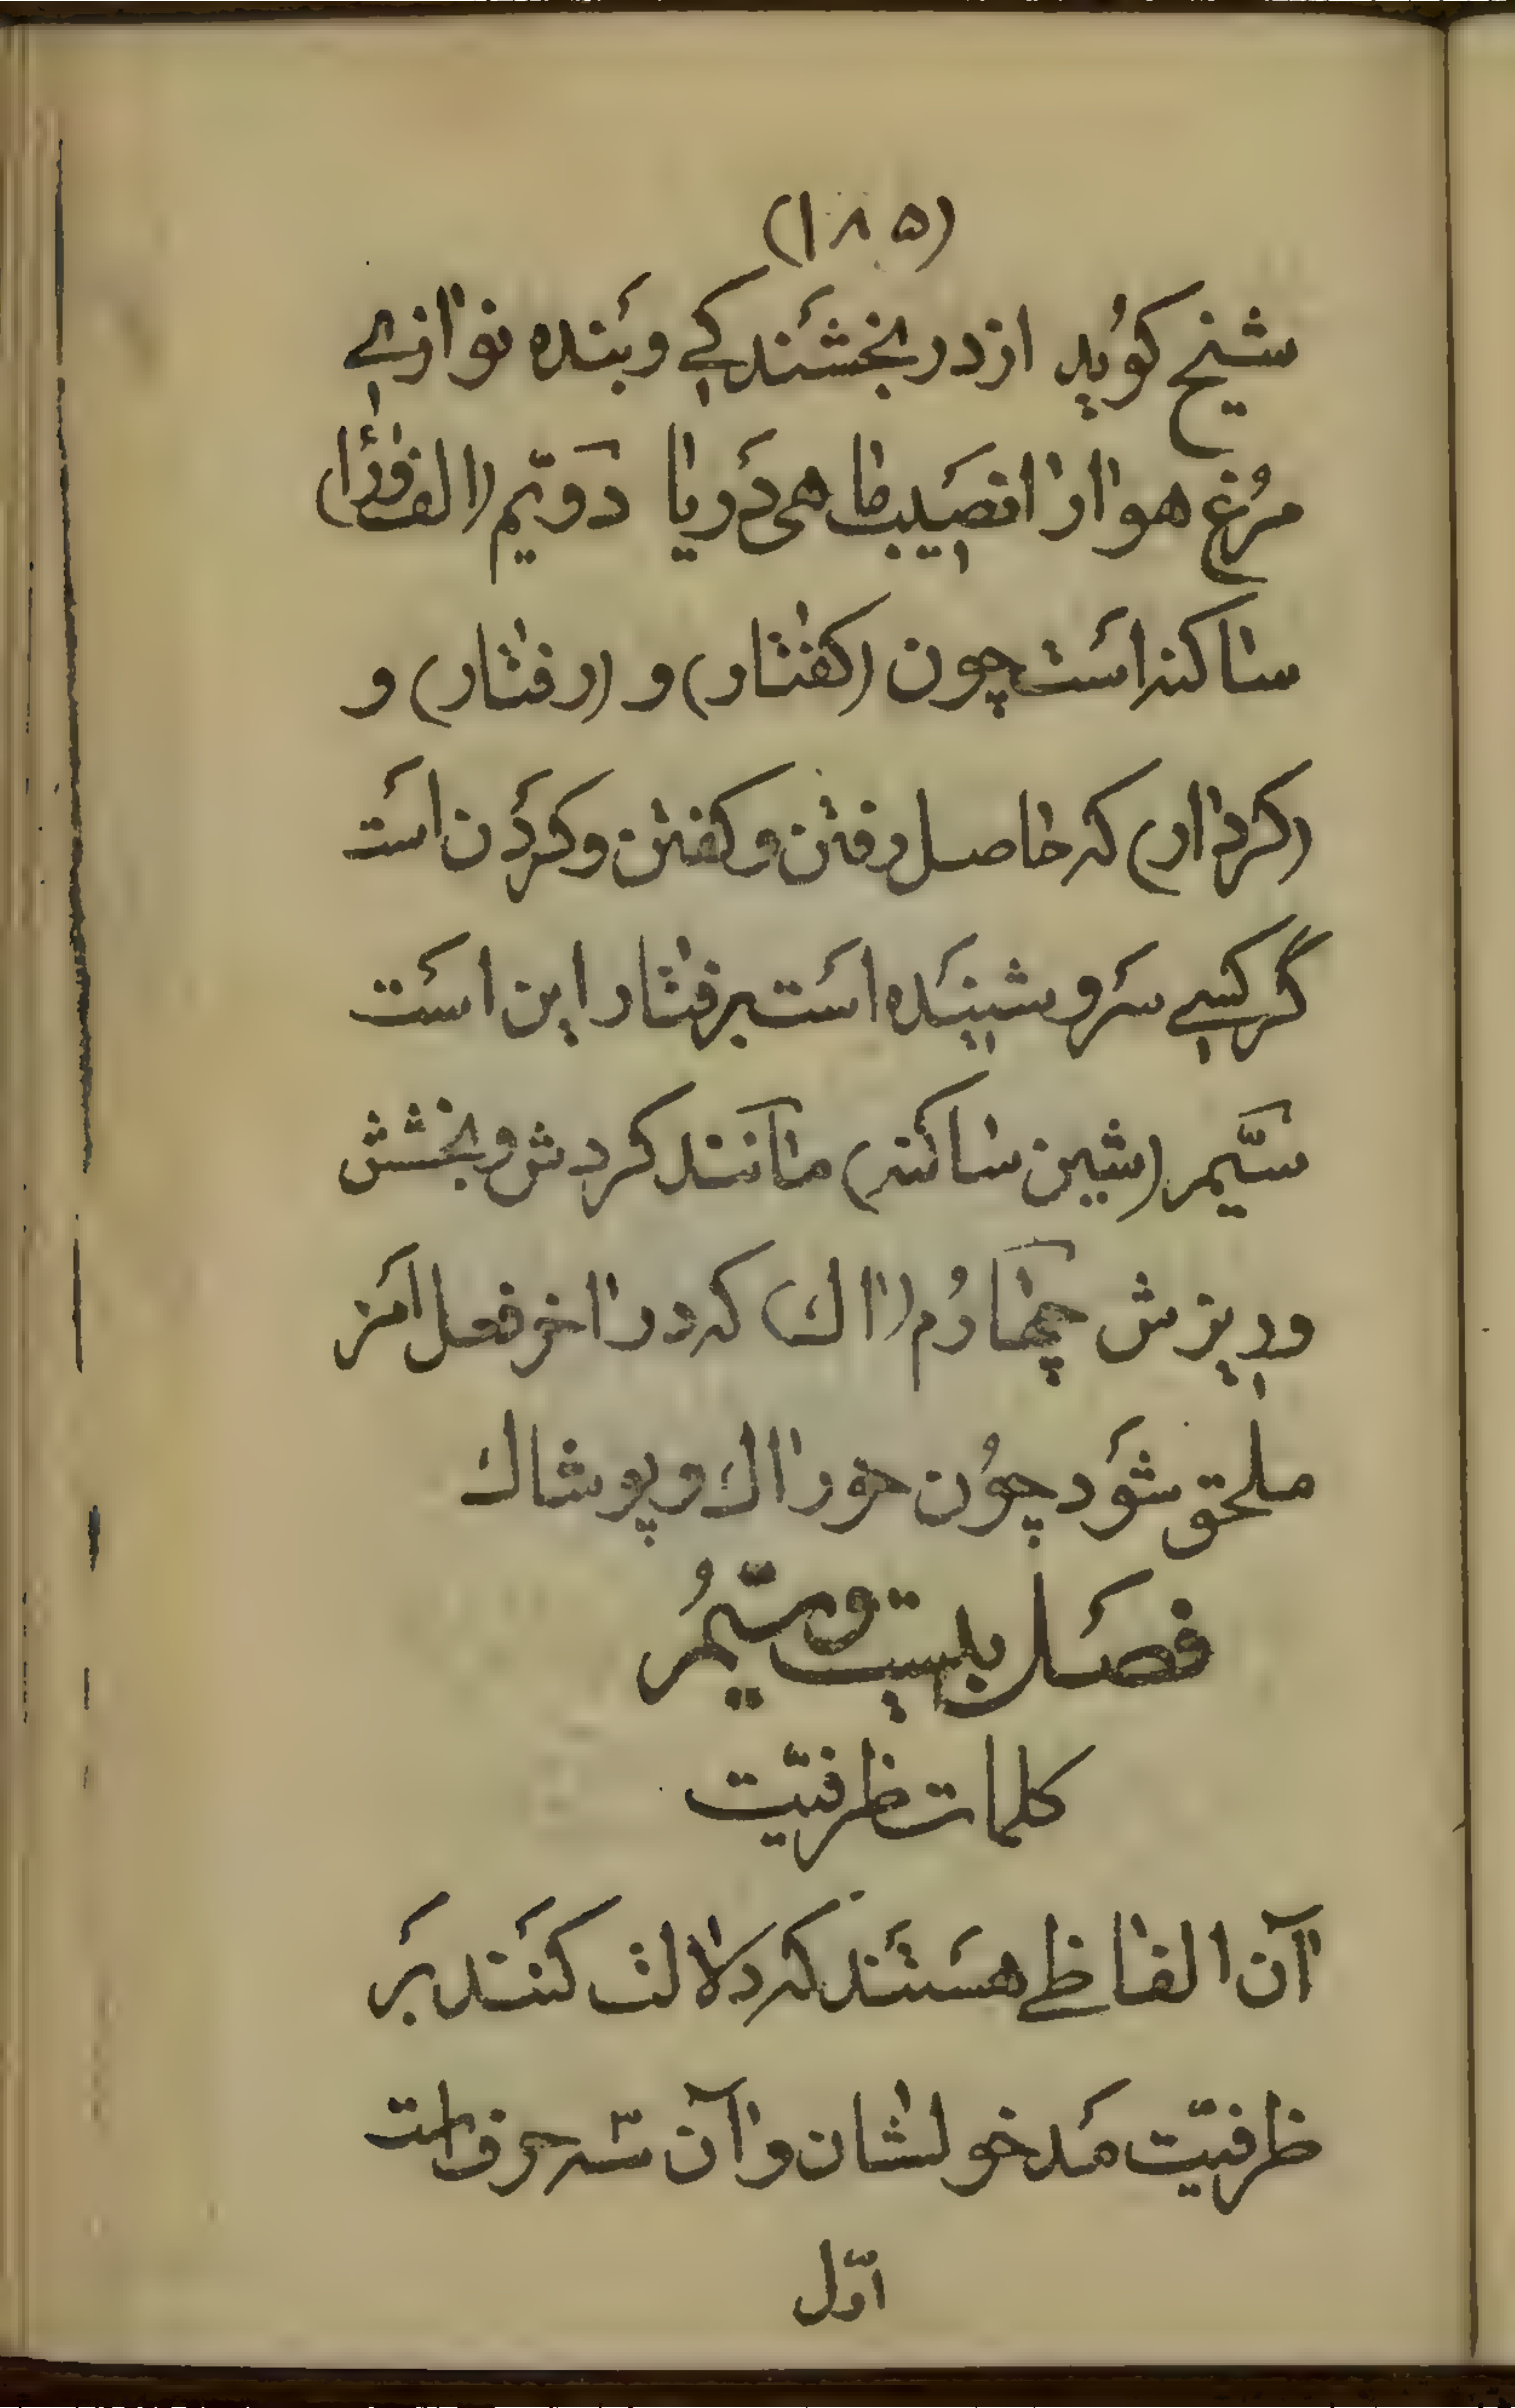 (۱۸۵)
شیخ کوُید از در بخشَندکِے وبَنده نوازے
مرُغ هوا را نصَیب ماهی دَریا دَویّم (الف ورا)
ساکنه اسَت چون (کفتار) و (رفتار) و
(کردار) که حاصل رفتن و کفتن وکرَدن اسَت
گر کسے سَرو شنیدَه اسَت برفتار این اسَت
سیّم (شین ساکنه) مانَند کردش و بخشش
وریزش چهارُم (اك) که در اخر فعل امَر
ملحق شوَد چوُن خوراك و پوشاك
فصَل بیست و سیّمُ
کلمات ظرفیّت
آن الفاظے هسَتَند که دلالت کنَند برَ
ظرفیّت مَدخولشان و آن سّه حرف است
اوّل